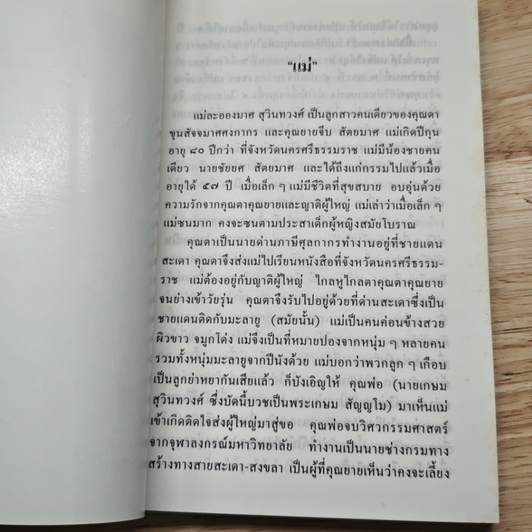 “แม่”
แม่ละอองมาศ สุวินทวงศ์ เป็นลูกสาวคนเดียวของคุณตา
ขุนสัจจมาศศงกากร และคุณยายจีบ สัตยมาศ แม่เกิดปีกุน
อายุ ๘๐ ปีกว่า ที่จังหวัดนครศรีธรรมราช แม่มีน้องชายคน
เดียว นายชัยยศ สัตยมาศ และได้ถึงแก่กรรมไปแล้วเมื่อ
อายุได้ ๕๗ ปี เมื่อเล็ก ๆ แม่มีชีวิตที่สุขสบาย อบอุ่นด้วย
ความรักจากคุณตาคุณยายและญาติผู้ใหญ่ แม่เล่าว่าเมื่อเล็ก ๆ
แม่ซนมาก คงจะซนตามประสาเด็กผู้หญิงสมัยโบราณ
คุณตาเป็นนายด่านภาษีศุลกากรทำงานอยู่ที่ชายแดน
สะเดา คุณตาจึงส่งแม่ไปเรียนหนังสือที่จังหวัดนครศรีธรรม-
ราช แม่ต้องอยู่กับญาติผู้ใหญ่ ไกลหูไกลตาคุณตาคุณยาย
จนย่างเข้าวัยรุ่น คุณตาจึงรับไปอยู่ด้วยที่ด่านสะเดาซึ่งเป็น
ชายแดนติดกับมะลายู (สมัยนั้น) แม่เป็นคนค่อนข้างสวย
ผิวขาว จมูกโด่ง แม่จึงเป็นที่หมายปองจากหนุ่ม ๆ หลายคน
รวมทั้งหนุ่มมะลายูจากปีนังด้วย แม่บอกว่าพวกลูก ๆ เกือบ
เป็นลูกย่าหยากันเสียแล้ว ก็บังเอิญให้ คุณพ่อ (นายเกษม
สุวินทวงศ์ ซึ่งบัดนี้บวชเป็นพระเกษม สัญญโม) มาเห็นแม่
เข้าเกิดติดใจส่งผู้ใหญ่มาสู่ขอ คุณพ่อจบวิศวกรรมศาสตร์
จากจุฬาลงกรณ์มหาวิทยาลัย ทำงานเป็นนายช่างกรมทาง
สร้างทางสายสะเดา-สงขลา เป็นผู้ที่คุณยายเห็นว่าคงจะเลี้ยง